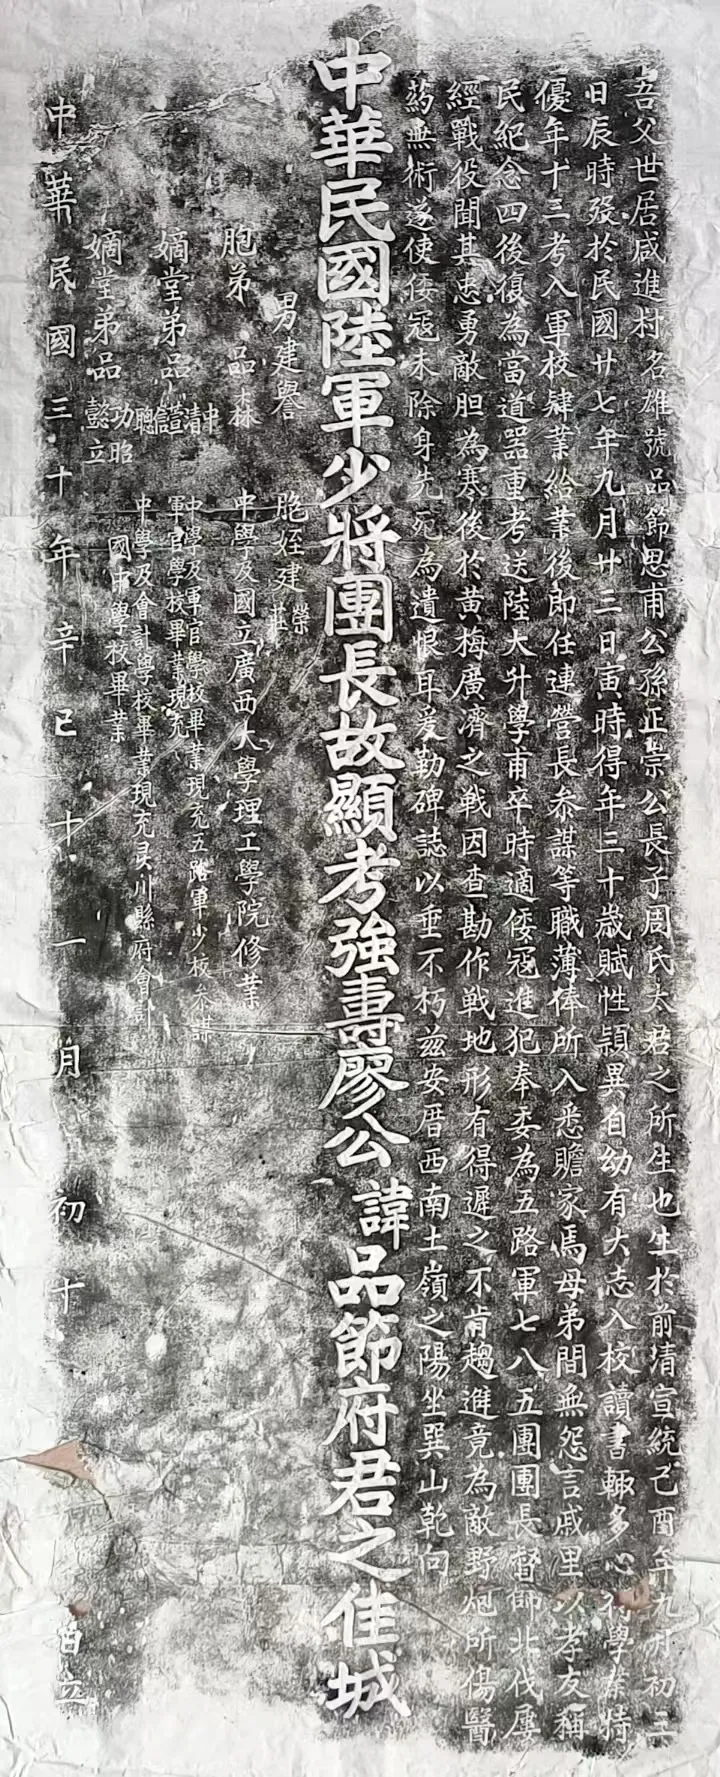 吾父世居咸進村名雄號品節思甫公孫正宗公長子周氏太君之所生也生於前清宣統己酉年九月初三
日辰時歿於民國廿七年九月廿三日寅時得年三十歲賦性穎異自幼有大志入校讀書輒多心得學業特
優年十三考入軍校肄業給業後即任連營長參謀等職薄俸所入悉贍家焉母弟間無怨言戚里以孝友稱
民紀念四後復為當道器重考送陸大升學甫卒時適倭寇進犯奉委為五路軍七八五團團長督師北伐屢
經戰役聞其忠勇敵胆為寒後於黄梅廣濟之戰因查勘作戰地形有得遲之不肯趨進竟為敵野炮所傷醫
葯無術遂使倭寇未除身先死為遺恨耳爰勒碑誌以垂不朽茲安厝西南土嶺之陽坐巽山乾向
中華民國陸軍少將團長故顯考強壽廖公諱品節府君之佳城
男建譽 胞姪建榮莊
胞弟品森 中學及國立廣西大學理工學院修業
嫡堂弟品中清 中學及軍官學校畢業現充五路軍少校參謀
軍官學校畢業現充
聰 中學及會計學校畢業現充灵川縣府會計
嫡堂弟品功昭懿立 國中學校畢業
中華民國三十年辛巳十一月初十 泊立